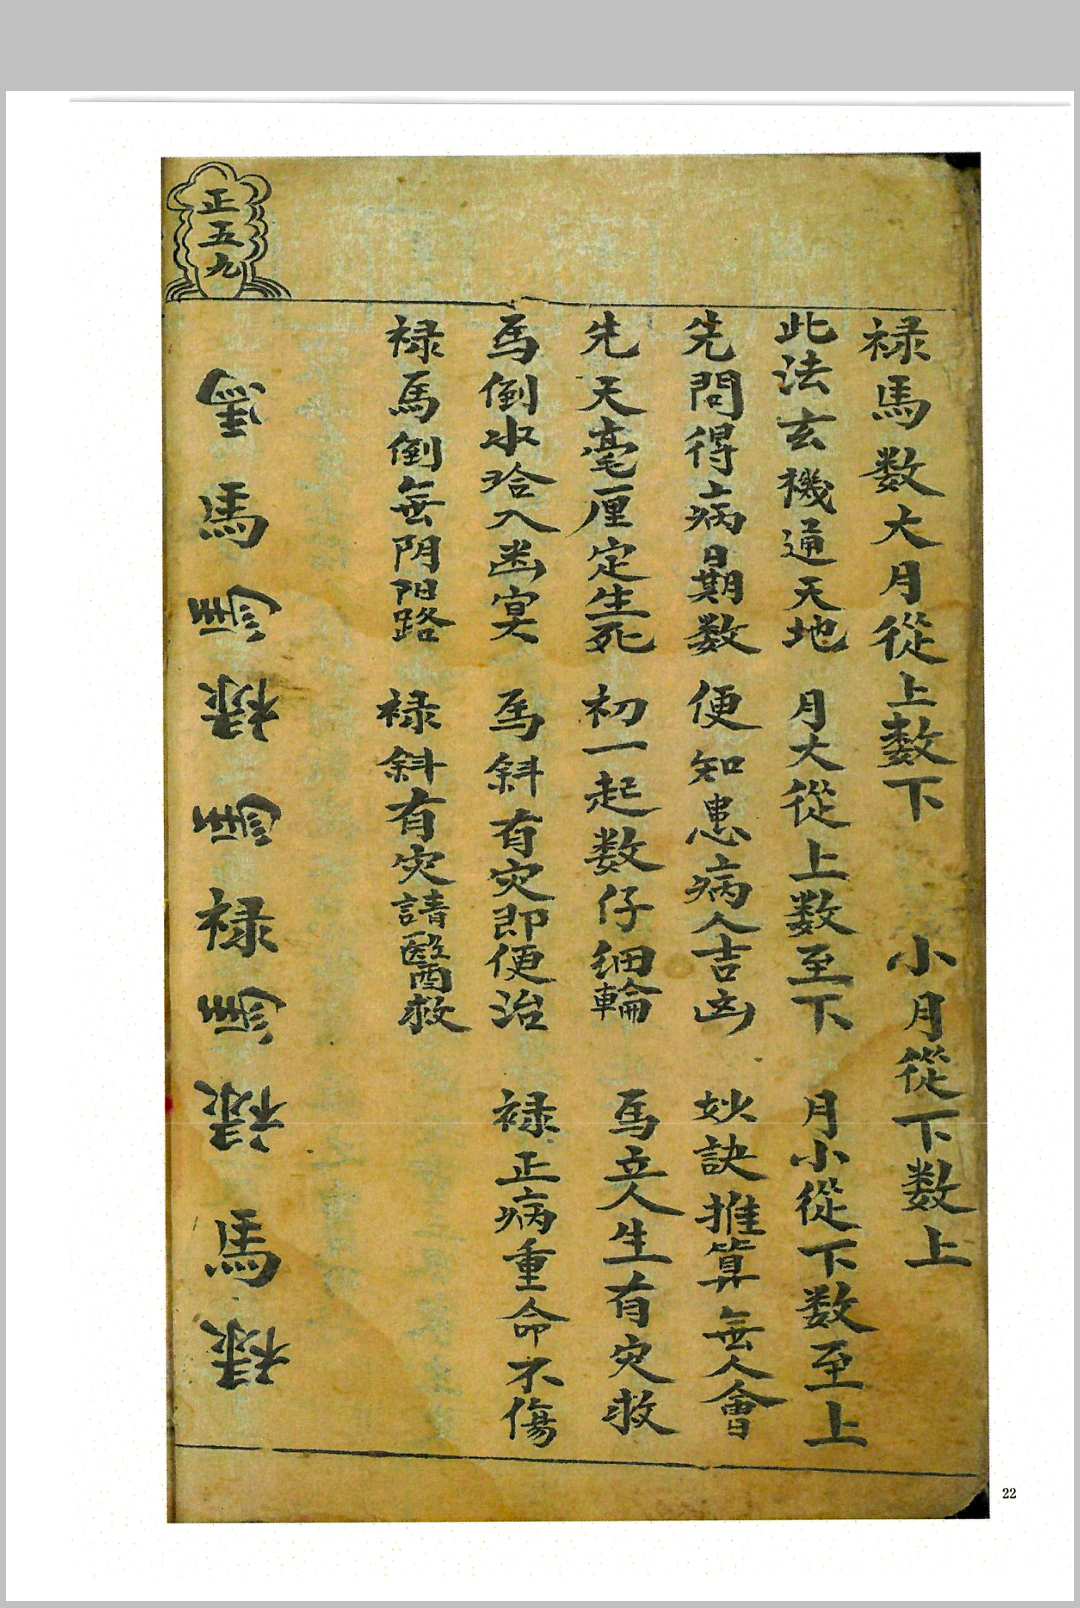 禄馬数大月從上数下　小月從下数上
此法玄機通天地　月大從上数至下　月小從下数至上
先問得病日期数　便知患病人吉凶　妙訣推算無人會
先天毫厘定生死　初一起数仔细輪　馬立人生有灾救
馬倒水 入幽冥　馬斜有灾即便治　禄正病重命不傷
禄馬倒無阴阳路　禄斜有灾請醫救
正五九
馬
馬
馬
禄
馬
禄
馬
禄
馬
禄
22